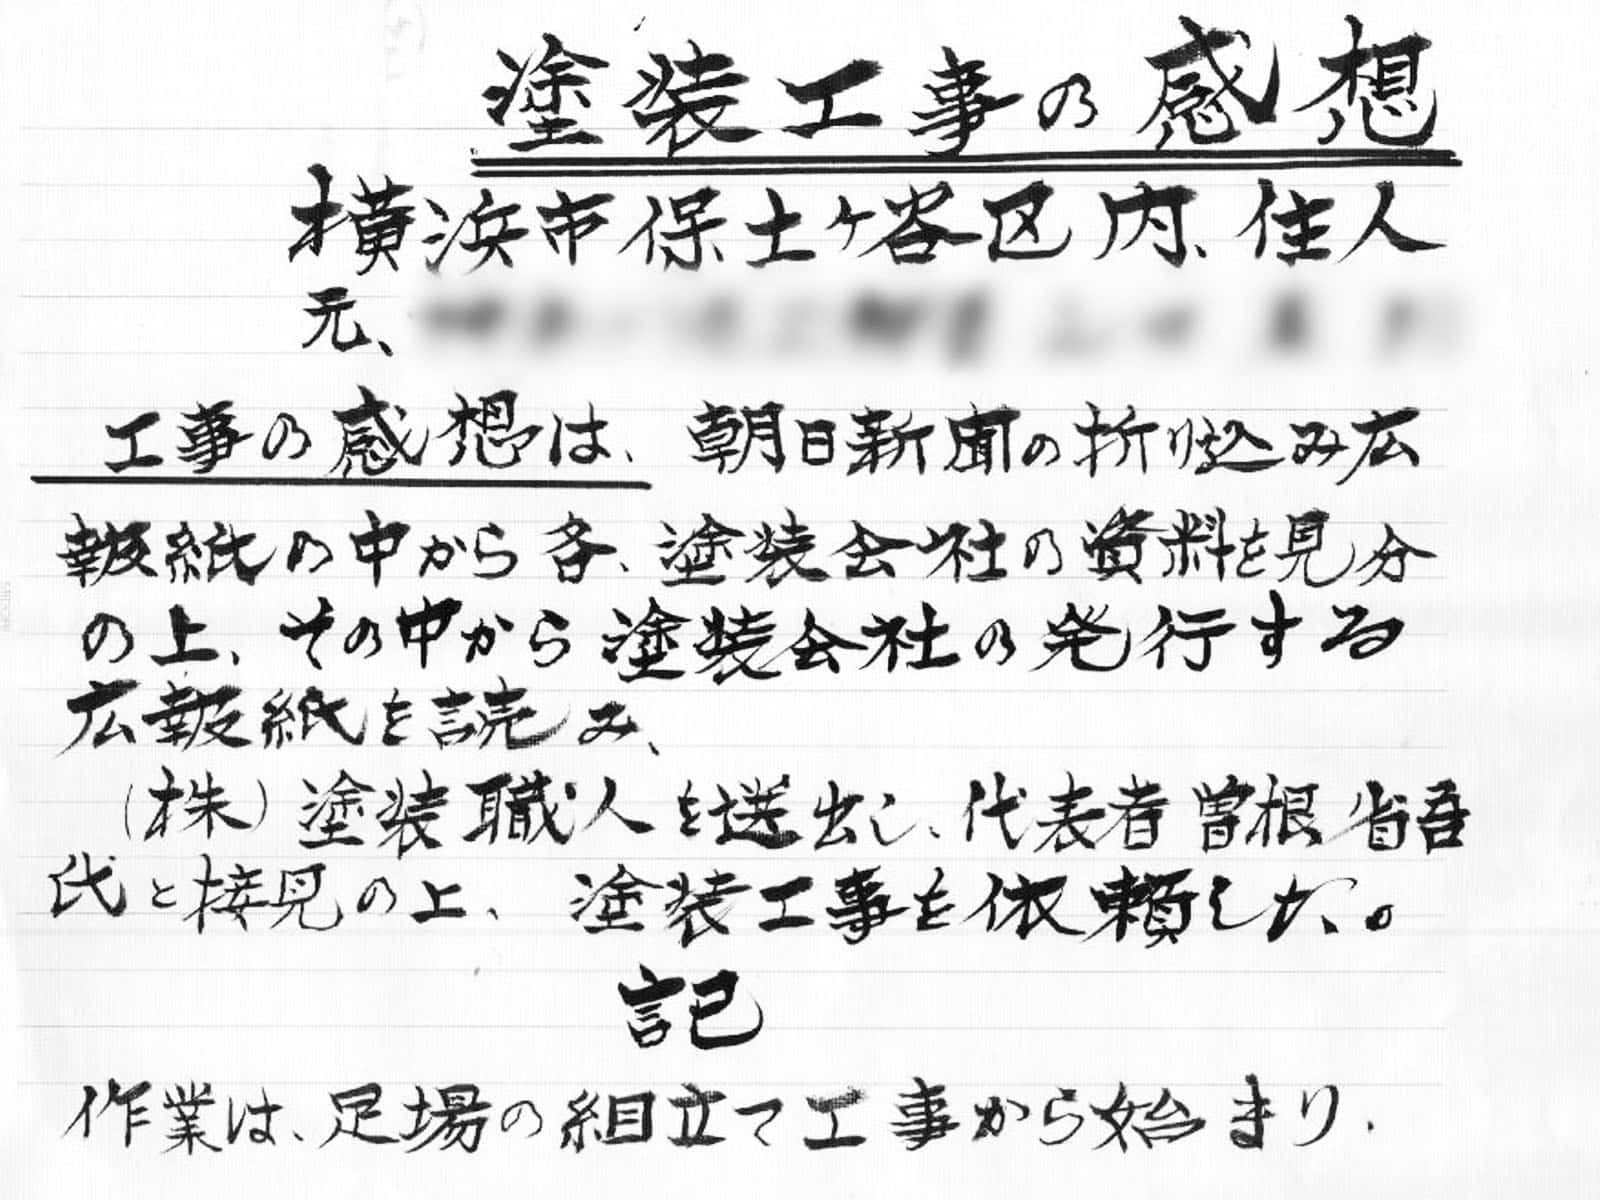 塗装工事の感想
横浜市保土ヶ谷区内、住人
元、
工事の感想は、朝日新聞の折り込み広
報紙の中から各、塗装会社の資料を見分
の上、その中から塗装会社の発行する
広報紙を読み、
(株)塗装職人を選出し、代表者曽根省吾
氏と接見の上、塗装工事を依頼した。
記
作業は、足場の組立て工事から始まり、